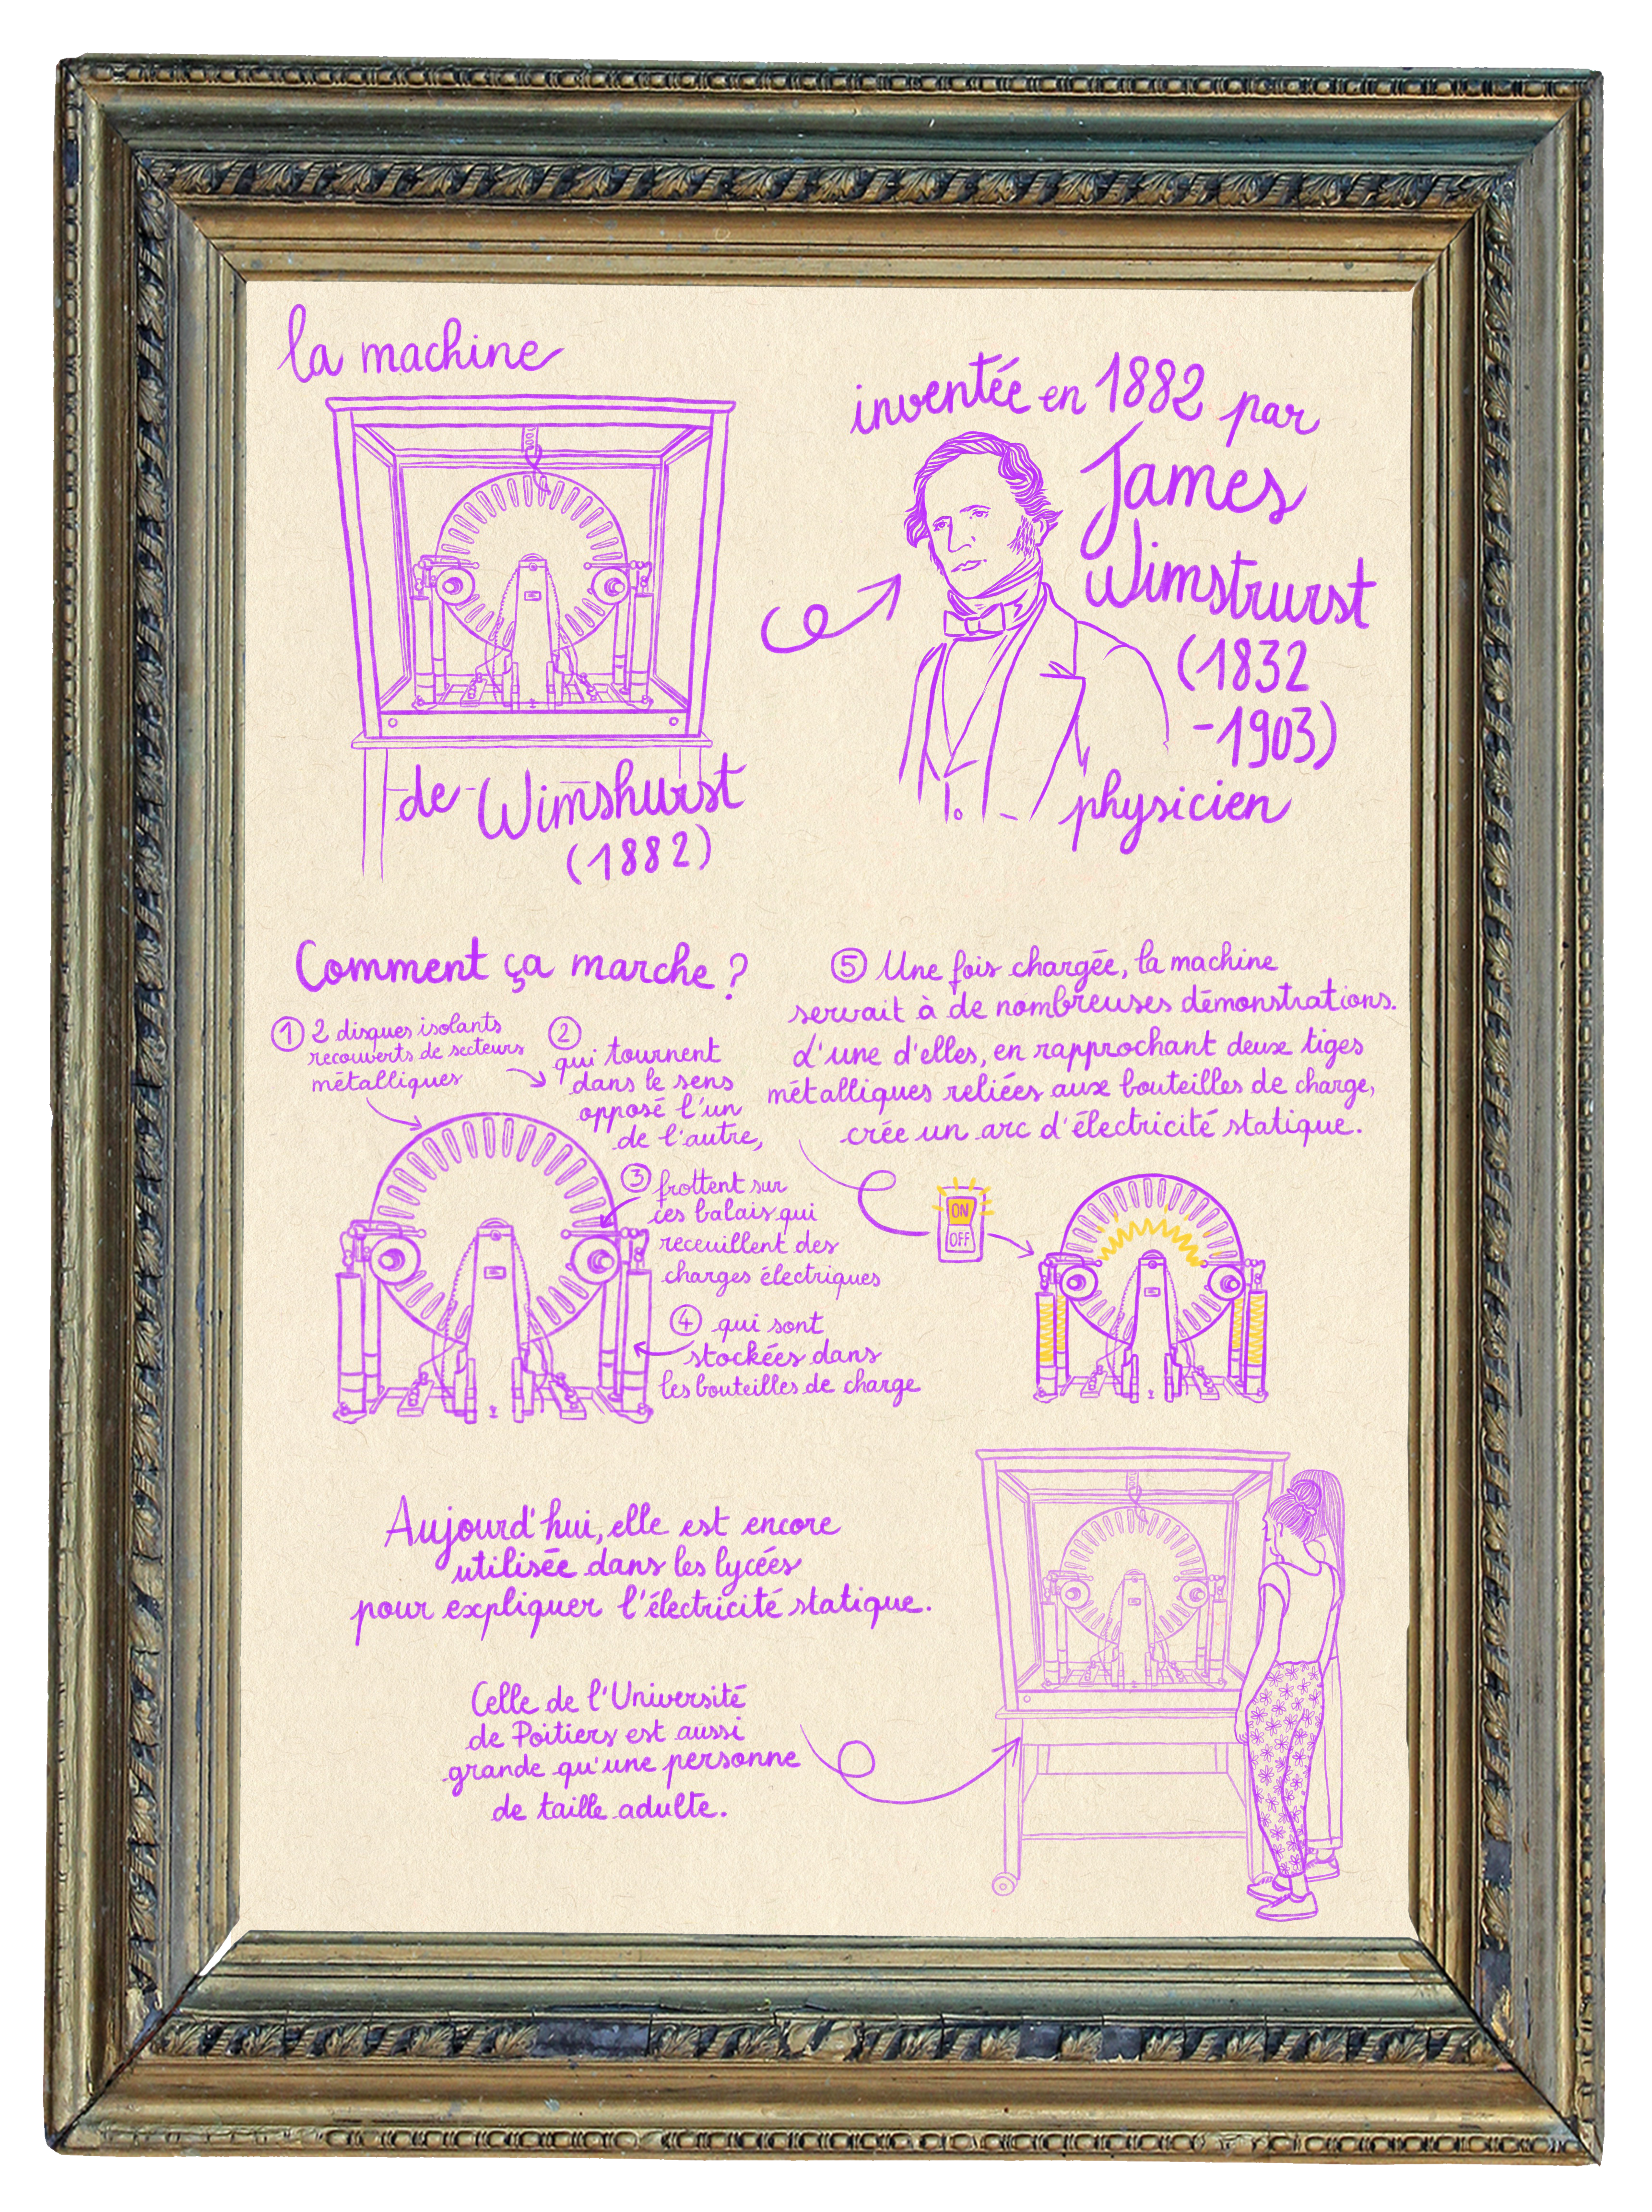 la machine
de Wimshurst
(1882)
inventée en 1882 par
James
Wimstrurst
(1832
-1903)
physicien
Comment ça marche ?
① 2 disques isolants
recouverts de secteurs
métalliques
②
qui tournent
dans le sens
opposé l'un
de l'autre,
③ frottent sur
ces balais qui
receuillent des
charges électriques
④ qui sont
stockées dans
les bouteilles de charge
⑤ Une fois chargée, la machine
servait à de nombreuses démonstrations.
L'une d'elles, en rapprochant deux tiges
métalliques reliées aux bouteilles de charge,
crée un arc d'électricité statique.
ON
OFF
Aujourd'hui, elle est encore
utilisée dans les lycées
pour expliquer l'électricité statique.
Celle de l'Université
de Poitiers est aussi
grande qu'une personne
de taille adulte.